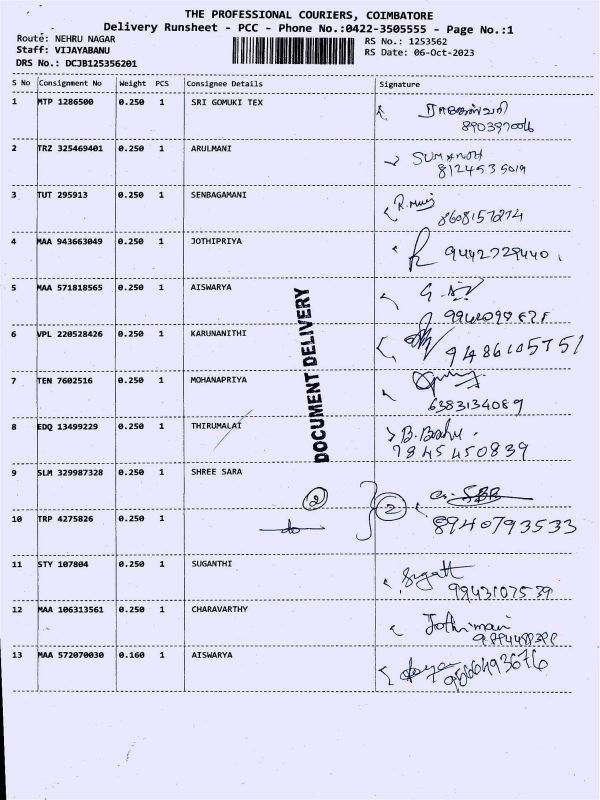 THE PROFESSIONAL COURIERS, COIMBATORE
Delivery Runsheet - PCC - Phone No.:0422-3505555 - Page No.:1
Route: NEHRU NAGAR
RS No.: 1253562
Staff: VIJAYABANU
RS Date: 06-Oct-2023
DRS No.: DCJB125356201
S No Consignment No Weight PCS Consignee Details Signature
1 MTP 1286500 0.250 1 SRI GOMUKI TEX
2 TRZ 325469401 0.250 1 ARULMANI
8124535019
3 TUT 295913 0.250 1 SENBAGAMANI
8608157274
4 MAA 943663049 0.250 1 JOTHIPRIYA
9442729440
5 MAA 571818565 0.250 1 AISWARYA
6 VPL 220528426 0.250 1 KARUNANITHI
9486105751
7 TEN 7602516 0.250 1 MOHANAPRIYA
6383134089
DOCUMENT DELIVERY
8 EDQ 13499229 0.250 1 THIRUMALAI
7845450839
9 SLM 329987328 0.250 1 SHREE SARA
2
10 TRP 4275826 0.250 1 do 2
8940793533
11 STY 107804 0.250 1 SUGANTHI
9943107539
12 MAA 106313561 0.250 1 CHARAVARTHY
Jothimani
13 MAA 572070030 0.160 1 AISWARYA